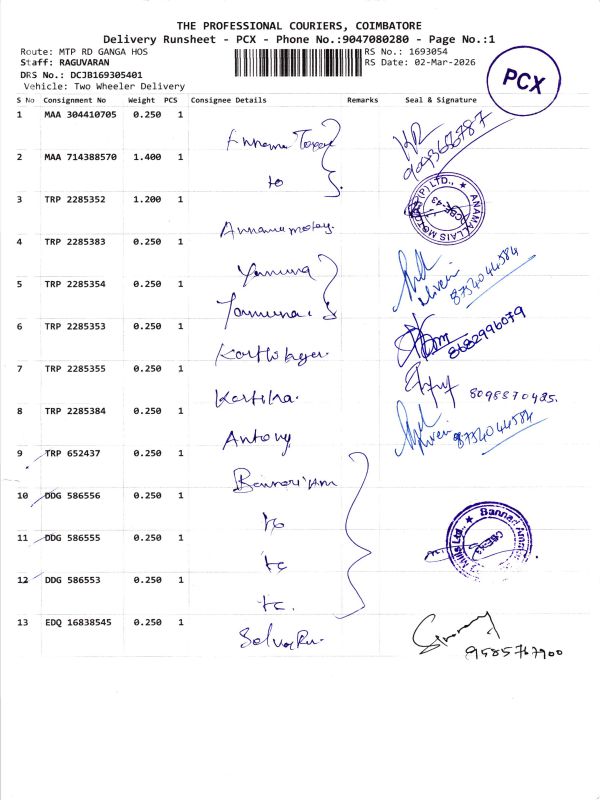 THE PROFESSIONAL COURIERS, COIMBATORE
Delivery Runsheet - PCX - Phone No.:9047080280 - Page No.:1
Route: MTP RD GANGA HOS
RS No.: 1693054
Staff: RAGUVARAN
RS Date: 02-Mar-2026
DRS No.: DCJB169305401
Vehicle: Two Wheeler Delivery
PCX
S No Consignment No Weight PCS Consignee Details Remarks Seal & Signature
1 MAA 304410705 0.250 1
2 MAA 714388570 1.400 1 to
3 TRP 2285352 1.200 1
ANAMALLAIS MOTORS (P) LTD., CBE-43
4 TRP 2285383 0.250 1 Yamuna
8754044584
5 TRP 2285354 0.250 1 Yamuna.
6 TRP 2285353 0.250 1
8682996079
7 TRP 2285355 0.250 1 Kartika.
8098870485.
8 TRP 2285384 0.250 1 Antony
8754044584
9 TRP 652437 0.250 1
10 DDG 586556 0.250 1 to
11 DDG 586555 0.250 1 to
Bannari Mills Ltd., CBE-43
12 DDG 586553 0.250 1 to.
13 EDQ 16838545 0.250 1
9585767900